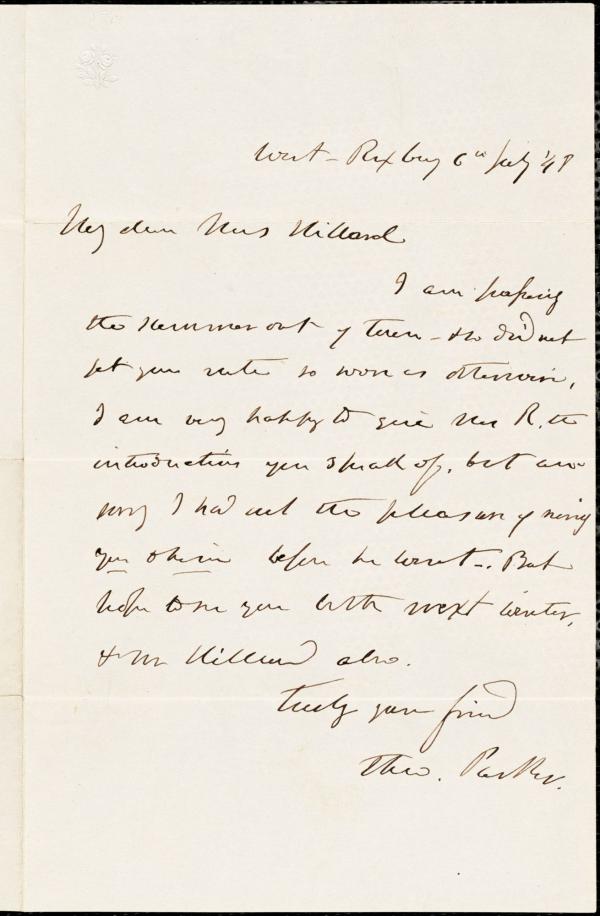 West-Roxbury 6th July '48
My dear Mrs Hillard
I am passing
the summer out of town - & so did not
get your note so soon as otherwise,
I am very happy to give Mr R. the
introductions you speak of, but am
sorry I had not the pleasure of seeing
you & him before he went -. But
hope to see you both next winter,
& Mr Hillard also.
Truly your friend
Theo. Parker.